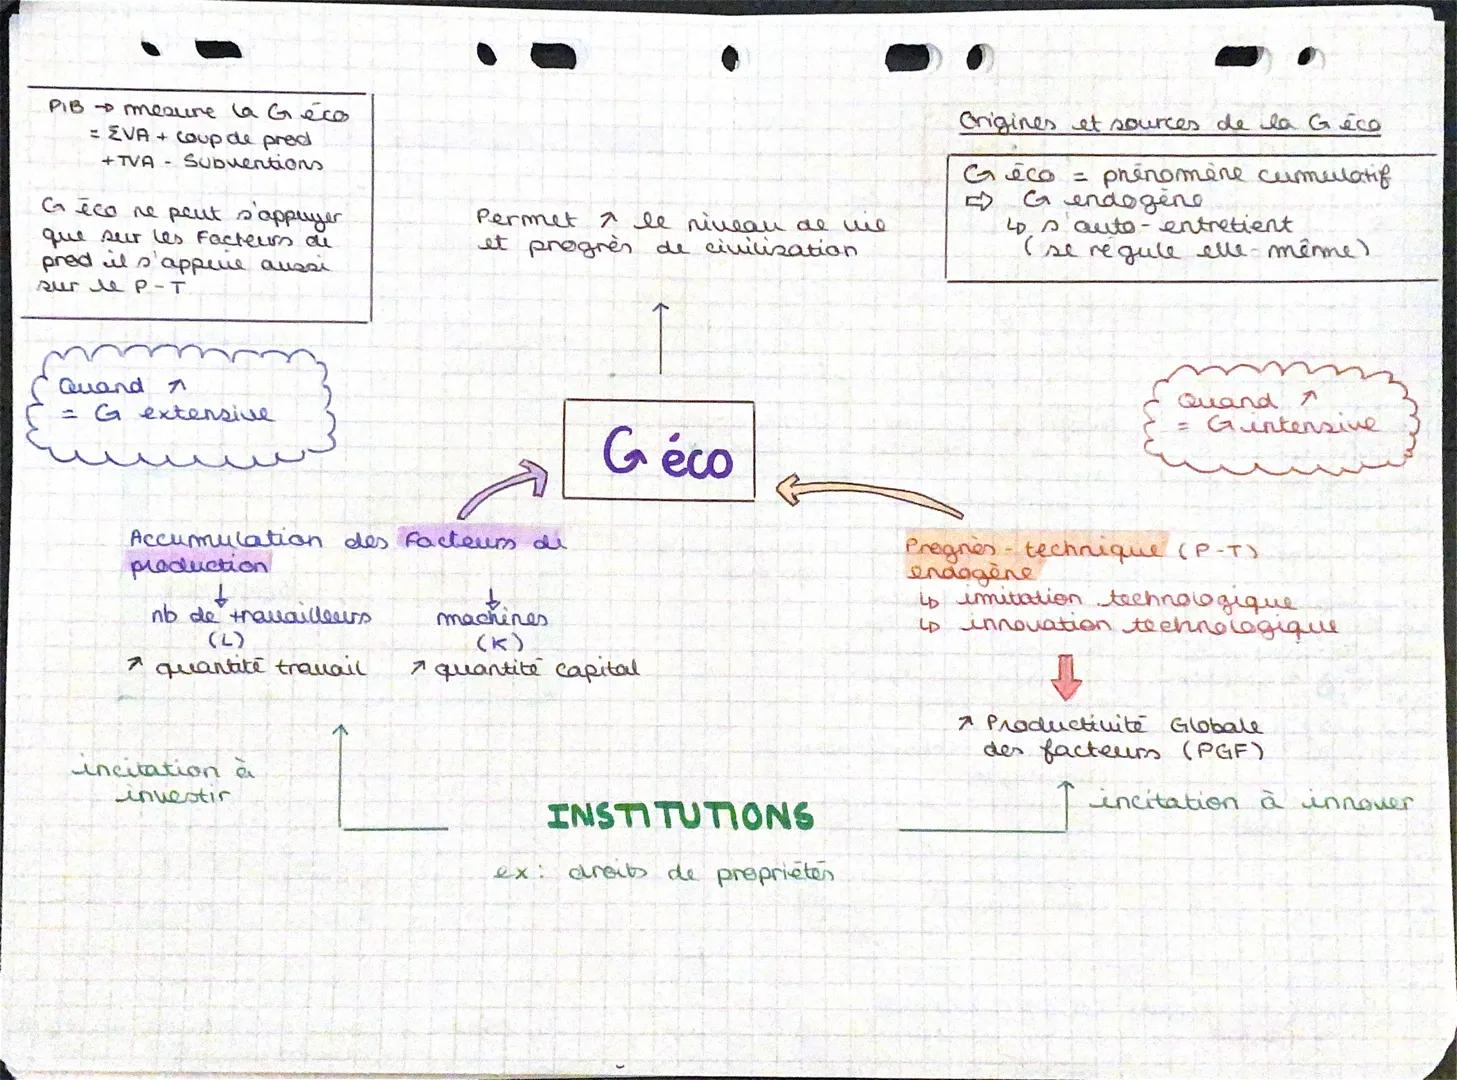 PIB → mesure la G éco
= ΣVA + coup de prod
+ TVA - Subventions
G éco ne peut s'appuyer
que sur les Facteurs de
prod il s'appuie aussi
sur le P-T
Permet ↗ le niveau de vie
et progrès de civilization
Origines et sources de la G éco
G éco = phénomène cumulatif
⇨ G endogène
↳ s'auto-entretient
(se régule elle-même)
Quand ↗
= G extensive
Quand ↗
= G intensive
G éco
Accumulation des Facteurs de
production
↓ nb de travailleurs
(L)
↗ quantité travail
↓ machines
(K)
↗ quantité capital
Progrès-technique (P-T)
endogène
↳ imitation technologique
↳ innovation technologique
↗ Productivité Globale
des facteurs (PGF)
incitation à
investir
INSTITUTIONS
ex: droits de propriétés
incitation à innover